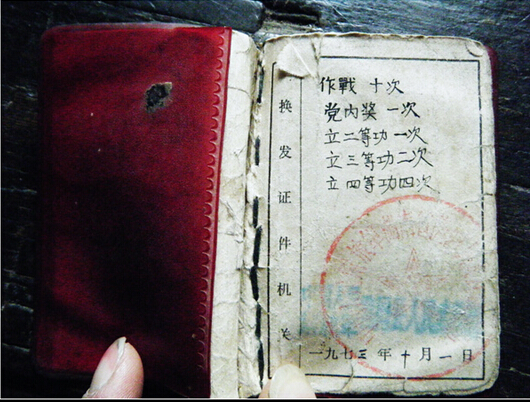 换发证件机关
作戰 十次
党内奖 一次
立二等功一次
立三等功二次
立四等功四次
一九七三年十月一日